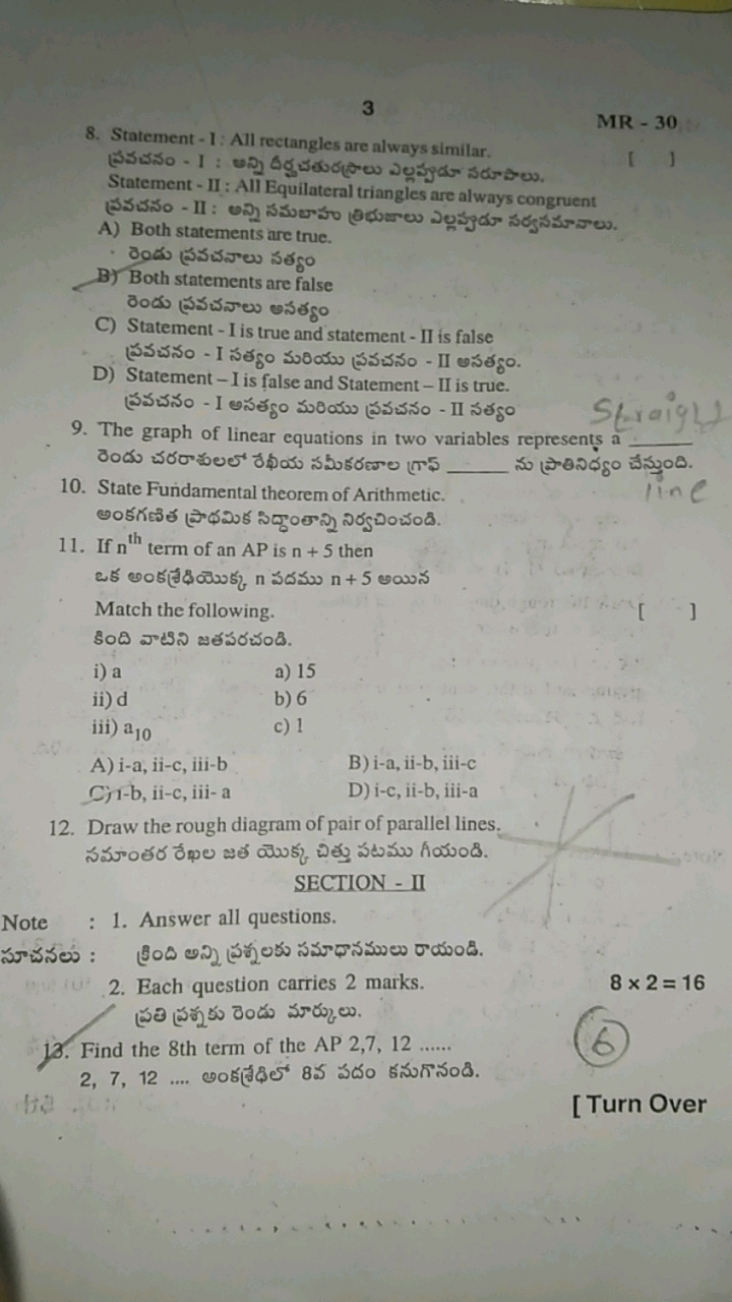 3
MR - 30
8. Statement - I : All rectangles are always similar. [ ]
ప్రవచనం - I : అన్ని దీర్ఘచతురస్రాలు ఎల్లప్పుడూ సరూపాలు.
Statement - II : All Equilateral triangles are always congruent
ప్రవచనం - II : అన్ని సమబాహు త్రిభుజాలు ఎల్లప్పుడూ సర్వసమానాలు.
A) Both statements are true.
రెండు ప్రవచనాలు సత్యం
B) Both statements are false
రెండు ప్రవచనాలు అసత్యం
C) Statement - I is true and statement - II is false
ప్రవచనం - I సత్యం మరియు ప్రవచనం - II అసత్యం.
D) Statement – I is false and Statement – II is true.
ప్రవచనం - I అసత్యం మరియు ప్రవచనం - II సత్యం
Straight
9. The graph of linear equations in two variables represents a ______
రెండు చరరాశులలో రేఖీయ సమీకరణాల గ్రాఫ్ ______ ను ప్రాతినిధ్యం చేస్తుంది.
line
10. State Fundamental theorem of Arithmetic.
అంకగణిత ప్రాథమిక సిద్ధాంతాన్ని నిర్వచించండి.
11. If nth term of an AP is n + 5 then
ఒక అంకశ్రేఢియొక్క n పదము n + 5 అయిన
Match the following. [ ]
కింది వాటిని జతపరచండి.
i) a a) 15
ii) d b) 6
iii) a10 c) 1
A) i-a, ii-c, iii-b B) i-a, ii-b, iii-c
C) i-b, ii-c, iii- a D) i-c, ii-b, iii-a
12. Draw the rough diagram of pair of parallel lines.
సమాంతర రేఖల జత యొక్క చిత్తు పటము గీయండి.
SECTION - II
Note : 1. Answer all questions.
సూచనలు : క్రింది అన్ని ప్రశ్నలకు సమాధానములు రాయండి.
2. Each question carries 2 marks. 8 × 2 = 16
ప్రతి ప్రశ్నకు రెండు మార్కులు.
13. Find the 8th term of the AP 2,7, 12 ...... 6
2, 7, 12 .... అంకశ్రేఢిలో 8వ పదం కనుగొనండి.
[ Turn Over